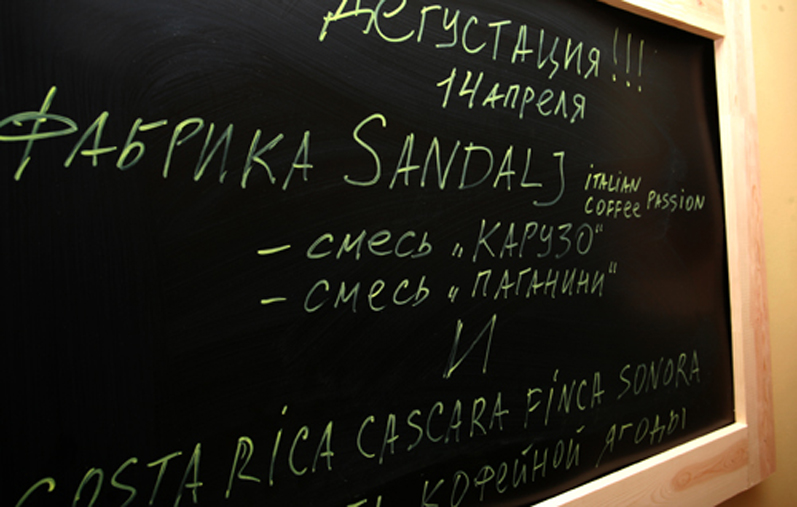 Дегустация!!!
14 апреля
ФАБРИКА SANDALJ iTALiAN
COFFee PASSiON
- смесь „КАРУЗО“
- смесь „ПАГАНИНИ“
И
COSTA RiCA CASCARA FiNCA SONORA
КОФЕЙНОЙ ЯГОДЫ